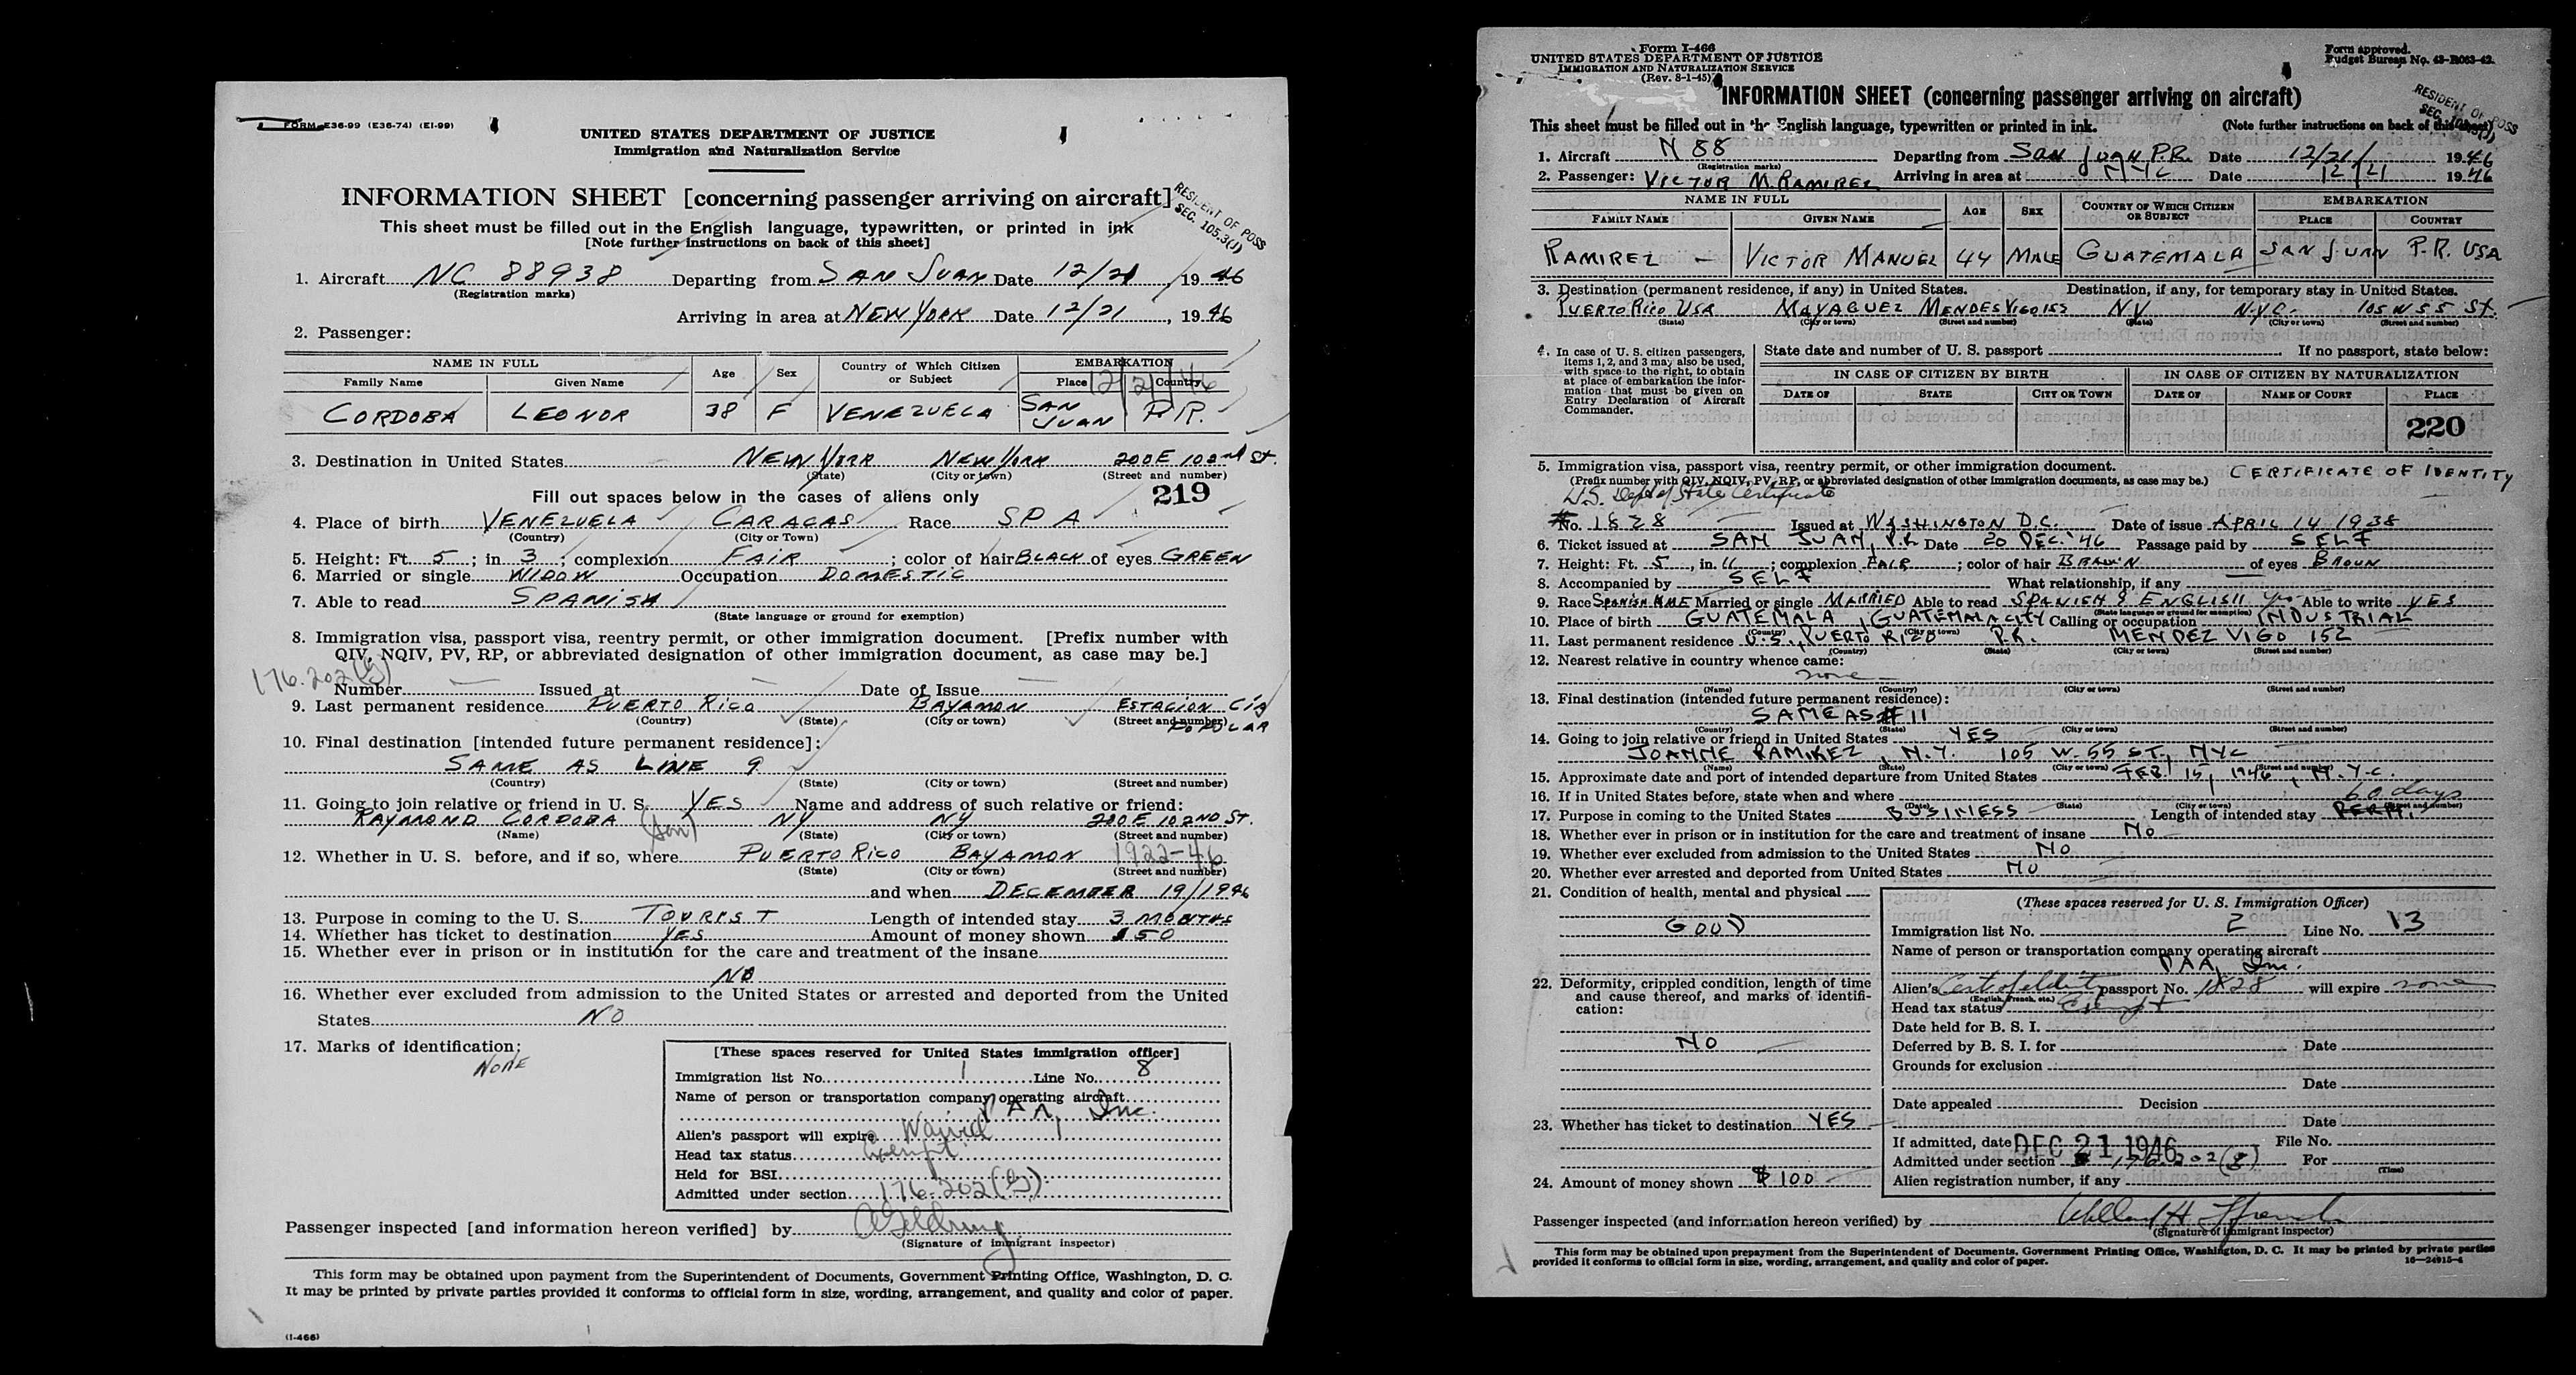 FORM E36-99 (E36-74) (EI-99)
UNITED STATES DEPARTMENT OF JUSTICE
Immigration and Naturalization Service
INFORMATION SHEET [concerning passenger arriving on aircraft]
RESIDENT OF POSS
SEC. 105.3(1)
This sheet must be filled out in the English language, typewritten, or printed in ink
[Note further instructions on back of this sheet]
1. Aircraft NC 88938 Departing from SAN JUAN Date 12/21 1946
(Registration marks)
Arriving in area at NEW YORK Date 12/21, 1946
2. Passenger:
NAME IN FULL Age Sex Country of Which Citizen or Subject EMBARKATION
Family Name Given Name Place Country
12/21/46
CORDOBA LEONOR 38 F VENEZUELA SAN JUAN P.R.
3. Destination in United States NEW YORK NEW YORK 200E 102nd St.
(State) (City or town) (Street and number)
Fill out spaces below in the cases of aliens only 219
4. Place of birth VENEZUELA CARACAS Race SPA
(Country) (City or Town)
5. Height: Ft. 5; in 3; complexion FAIR; color of hair BLACK of eyes GREEN
6. Married or single WIDOW Occupation DOMESTIC
7. Able to read SPANISH
(State language or ground for exemption)
8. Immigration visa, passport visa, reentry permit, or other immigration document. [Prefix number with
QIV, NQIV, PV, RP, or abbreviated designation of other immigration document, as case may be.]
176.202(g)
Number — Issued at — Date of Issue —
9. Last permanent residence PUERTO RICO BAYAMON ESTACION CIA
(Country) (State) (City or town) (Street and number)
POPULAR
10. Final destination [intended future permanent residence]:
SAME AS LINE 9
(Country) (State) (City or town) (Street and number)
11. Going to join relative or friend in U. S. YES Name and address of such relative or friend:
RAYMOND CORDOBA (son) NY NY 200E 102ND ST.
(Name) (State) (City or town) (Street and number)
12. Whether in U. S. before, and if so, where PUERTO RICO BAYAMON 1922-46
(State) (City or town) (Street and number)
and when DECEMBER 19/1946
13. Purpose in coming to the U. S. TOURIST Length of intended stay 3 MONTHS
14. Whether has ticket to destination YES Amount of money shown $50
15. Whether ever in prison or in institution for the care and treatment of the insane
NO
16. Whether ever excluded from admission to the United States or arrested and deported from the United
States NO
17. Marks of identification:
NONE
[These spaces reserved for United States immigration officer]
Immigration list No. 1 Line No. 8
Name of person or transportation company operating aircraft
PAA, Inc.
Alien's passport will expire Waived
Head tax status Exempt
Held for BSI
Admitted under section 176.202(g)
Passenger inspected [and information hereon verified] by
(Signature of immigrant inspector)
This form may be obtained upon payment from the Superintendent of Documents, Government Printing Office, Washington, D. C.
It may be printed by private parties provided it conforms to official form in size, wording, arrangement, and quality and color of paper.
(I-466)
Form I-466
UNITED STATES DEPARTMENT OF JUSTICE
IMMIGRATION AND NATURALIZATION SERVICE
(Rev. 8-1-45)
Form approved.
Budget Bureau No. 43-R063-42.
INFORMATION SHEET (concerning passenger arriving on aircraft)
RESIDENT OF POSS
This sheet must be filled out in the English language, typewritten or printed in ink. (Note further instructions on back of this sheet)
1. Aircraft N 88 Departing from SAN JUAN P.R. Date 12/21/ 1946
(Registration marks)
2. Passenger: VICTOR M. RAMIREZ Arriving in area at NYC Date 12/21 1946
NAME IN FULL AGE SEX COUNTRY OF WHICH CITIZEN OR SUBJECT EMBARKATION
FAMILY NAME GIVEN NAME PLACE COUNTRY
RAMIREZ — VICTOR MANUEL 44 MALE GUATEMALA SAN JUAN P.R. USA
3. Destination (permanent residence, if any) in United States. Destination, if any, for temporary stay in United States.
PUERTO RICO USA MAYAGUEZ MENDES VIGO 152 NY N.Y.C. 105 W 55 St.
(State) (City or town) (Street and number) (State) (City or town) (Street and number)
4. In case of U. S. citizen passengers, items 1, 2, and 3 may also be used, with space to the right, to obtain at place of embarkation the information that must be given on Entry Declaration of Aircraft Commander.
State date and number of U. S. passport If no passport, state below:
IN CASE OF CITIZEN BY BIRTH IN CASE OF CITIZEN BY NATURALIZATION
DATE OF STATE CITY OR TOWN DATE OF NAME OF COURT PLACE
220
5. Immigration visa, passport visa, reentry permit, or other immigration document. CERTIFICATE OF IDENTITY
(Prefix number with QIV, NQIV, PV, RP, or abbreviated designation of other immigration documents, as case may be.)
U.S. Dept of State Certificate
No. 1828 Issued at WASHINGTON D.C. Date of issue APRIL 14 1938
6. Ticket issued at SAN JUAN, P.R. Date 20 DEC. '46 Passage paid by SELF
7. Height: Ft. 5, in. 11; complexion FAIR; color of hair BROWN of eyes BROWN
8. Accompanied by SELF What relationship, if any —
9. Race SPANISH AME Married or single MARRIED Able to read SPANISH & ENGLISH yes Able to write YES
(State language or ground for exemption)
10. Place of birth GUATEMALA, GUATEMALA CITY Calling or occupation INDUSTRIAL
(Country) (City or town)
11. Last permanent residence U.S., PUERTO RICO P.R. MENDEZ VIGO 152
(Country) (State) (City or town) (Street and number)
12. Nearest relative in country whence came:
none
(Name) (Country) (City or town) (Street and number)
13. Final destination (intended future permanent residence):
SAME AS # 11
(Country) (State) (City or town) (Street and number)
14. Going to join relative or friend in United States YES
JOANNE RAMIREZ, N.Y. 105 W. 55 ST., NYC
(Name) (State) (City or town) (Street and number)
15. Approximate date and port of intended departure from United States FEB. 15, 1946, N.Y.C.
16. If in United States before, state when and where
(Date) (State) (City or town) (Street and number)
60 days
17. Purpose in coming to the United States BUSINESS Length of intended stay PERM.
18. Whether ever in prison or in institution for the care and treatment of insane NO
19. Whether ever excluded from admission to the United States NO
20. Whether ever arrested and deported from United States NO
21. Condition of health, mental and physical
GOOD
22. Deformity, crippled condition, length of time and cause thereof, and marks of identification:
NO
23. Whether has ticket to destination YES
24. Amount of money shown $100
(These spaces reserved for U. S. Immigration Officer)
Immigration list No. 2 Line No. 13
Name of person or transportation company operating aircraft
PAA, Inc.
Alien's Cert of Identity passport No. 1828 will expire none
(English, French, etc.)
Head tax status Exempt
Date held for B. S. I.
Deferred by B. S. I. for Date
Grounds for exclusion
Date
Date appealed Decision
Date
If admitted, date DEC 21 1946 File No.
Admitted under section 176.202(g) For
(Time)
Alien registration number, if any
Passenger inspected (and information hereon verified) by
(Signature of immigrant inspector)
This form may be obtained upon prepayment from the Superintendent of Documents, Government Printing Office, Washington, D. C. It may be printed by private parties
provided it conforms to official form in size, wording, arrangement, and quality and color of paper. 16—24915-4